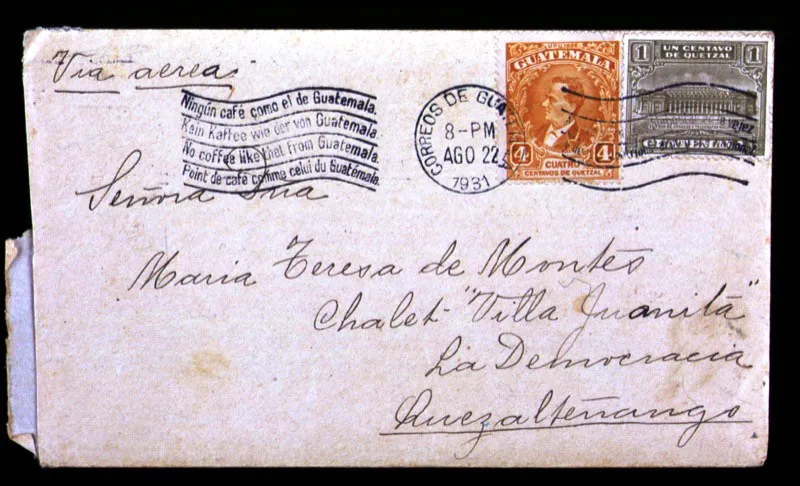 Via aerea
Ningún café como el de Guatemala.
Kein Kaffee wie der von Guatemala.
No coffee like that from Guatemala.
Point de café comme celui du Guatémala.
CORREOS DE GUAT
8-PM
AGO 22
1931
GUATEMALA
4 4
CUATRO
CENTAVOS DE QUETZAL
1 UN CENTAVO 1
DE QUETZAL
GUATEMALA
Señora Dña
Maria Teresa de Montes
Chalet "Villa Juanita"
La Democracia
Quezalteñango